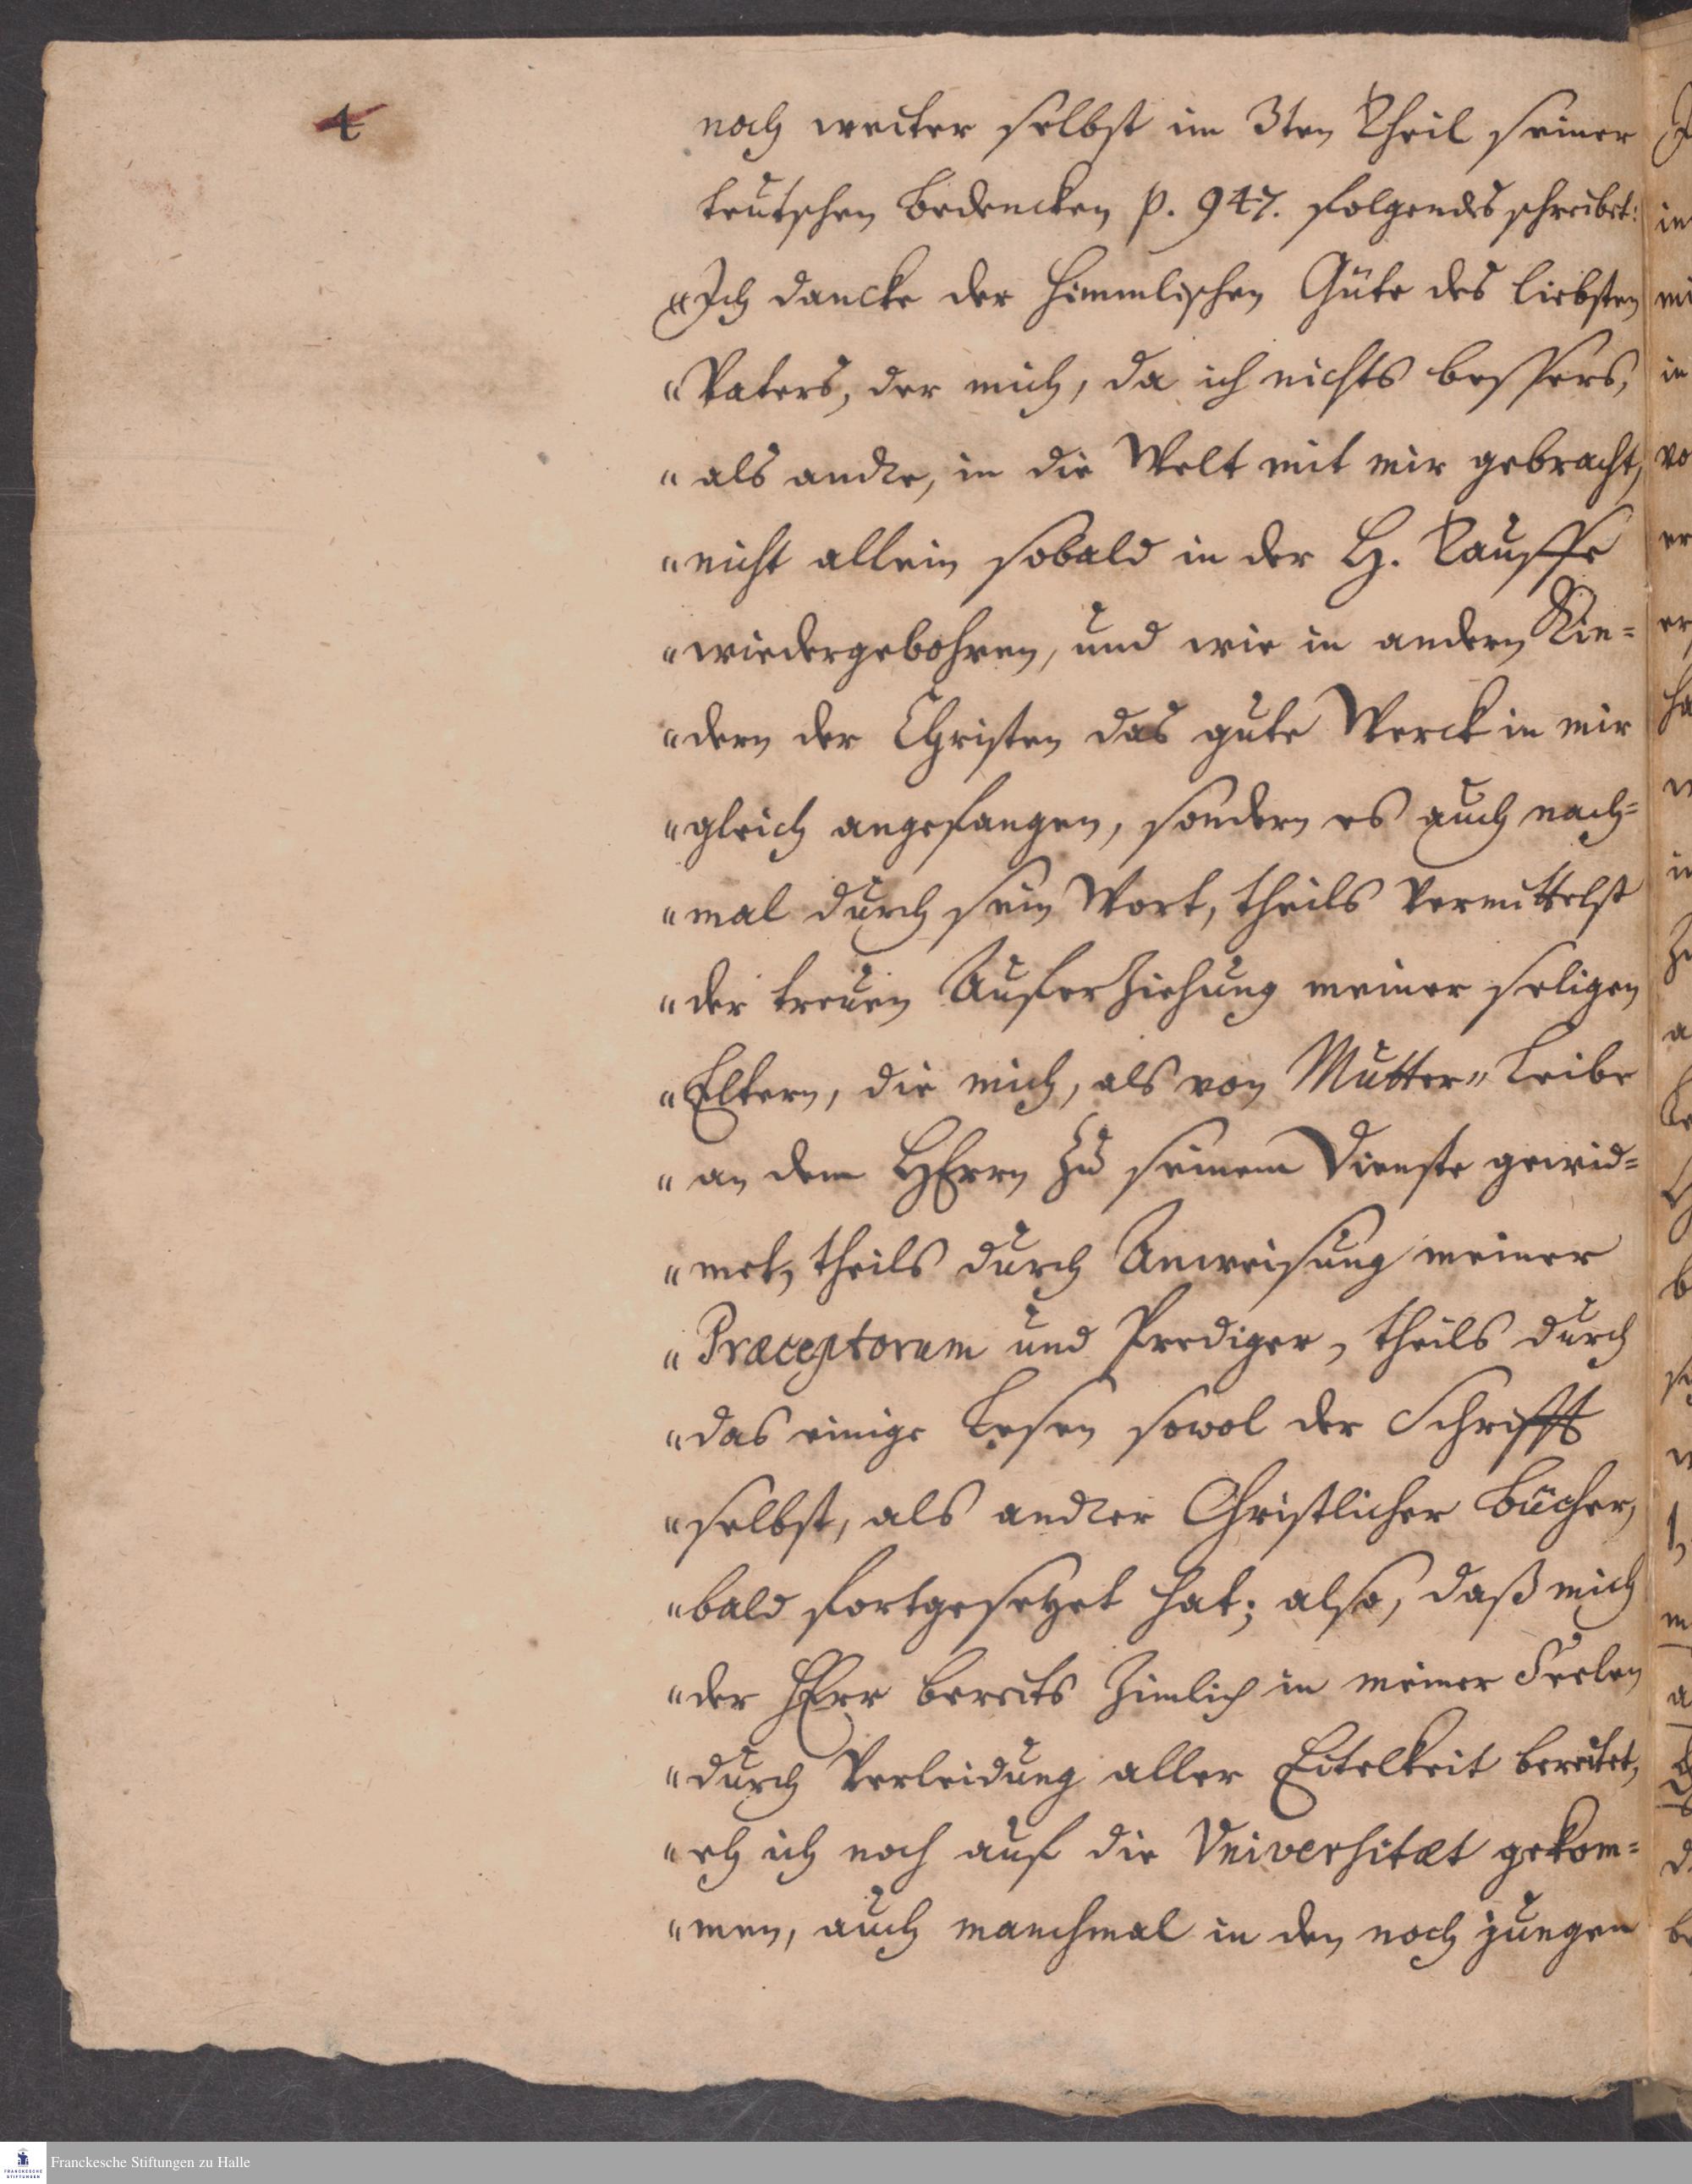 4
noch weiter selbst im 3ten Theil seiner
teutschen Bedencken p. 947. folgendes schreibet:
„Ich dancke der himmlischen Güte des liebsten
„Vaters, der mich, da ich nichts bessers,
„als andre, in die Welt mit mir gebracht,
„nicht allein sobald in der H. Tauffe
„wiedergebohren, und wie in andern Kin=
„dern der Christen das gute Werck in mir
„gleich angefangen, sondern es auch nach=
„mal durch sein Wort, theils vermittelst
„der treuen Auferziehung meiner seligen
„Eltern, die mich, als von Mutter=Leibe
„an dem HErrn zu seinem Dienste gewid=
„met, theils durch Anweisung meiner
„Præceptorum und Prediger, theils durch
„das einige Lesen sowol der Schrifft
„selbst, als andrer Christlicher Bücher,
„bald fortgesetzet hat; also, daß mich
„der HErr bereits zimlich in meiner Seelen
„durch Verleidung aller Eitelkeit bereitet,
„eh ich noch auf die Universitæt gekom=
„men, auch manchmal in den noch jungen
FRANCKESCHE STIFTUNGEN
Franckesche Stiftungen zu Halle